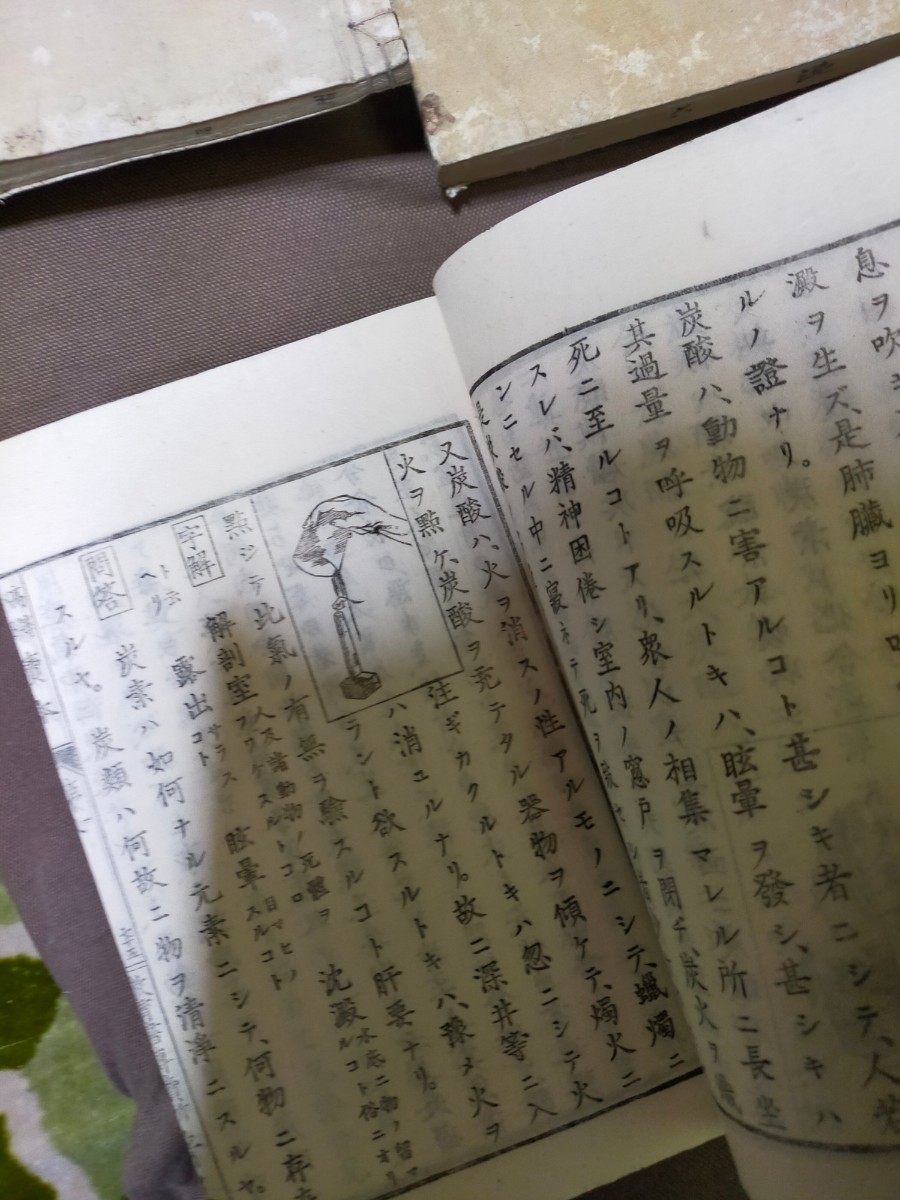 息ヲ吹キ
澱ヲ生ズ、是肺臓ヨリ
ルノ證ナリ。
炭酸ハ、動物ニ害アルコト甚シキ者ニシテ、人若
其過量ヲ呼吸スルトキハ、眩暈ヲ發シ、甚シキハ
死ニ至ルコトアリ、衆人ノ相集マレル所ニ長坐
スレバ、精神困倦シ室内ノ窓戸ヲ閉ヂ、炭火ヲ
ンニセル中ニ寢ネテ死ヲ
又炭酸ハ、火ヲ消スノ性アルモノニシテ、蠟燭ニ
火ヲ點ケ、炭酸ヲ充テタル器物ヲ傾ケテ、燭火ニ
注ギカクルトキハ忽ニシテ火
ハ消エルナリ。故ニ深井等ニ入
ラント欲スルトキハ、豫メ火ヲ
點シテ此氣ノ有無ヲ驗スルコト肝要ナリ。
字解 解剖室 人又諸動物ノ死體ヲフワケスルトコロ 沈澱 水底ニ物ノ留マルコト俗ニオリ
トニ云ヘリ 露出 サラスコト 眩暈 目マヒノスルコト
問答 炭素ハ如何ナル元素ニシテ、何物ニ存
スルヤ。 炭類ハ何故ニ物ヲ清淨ニスルヤ。
高等讀本
七十五